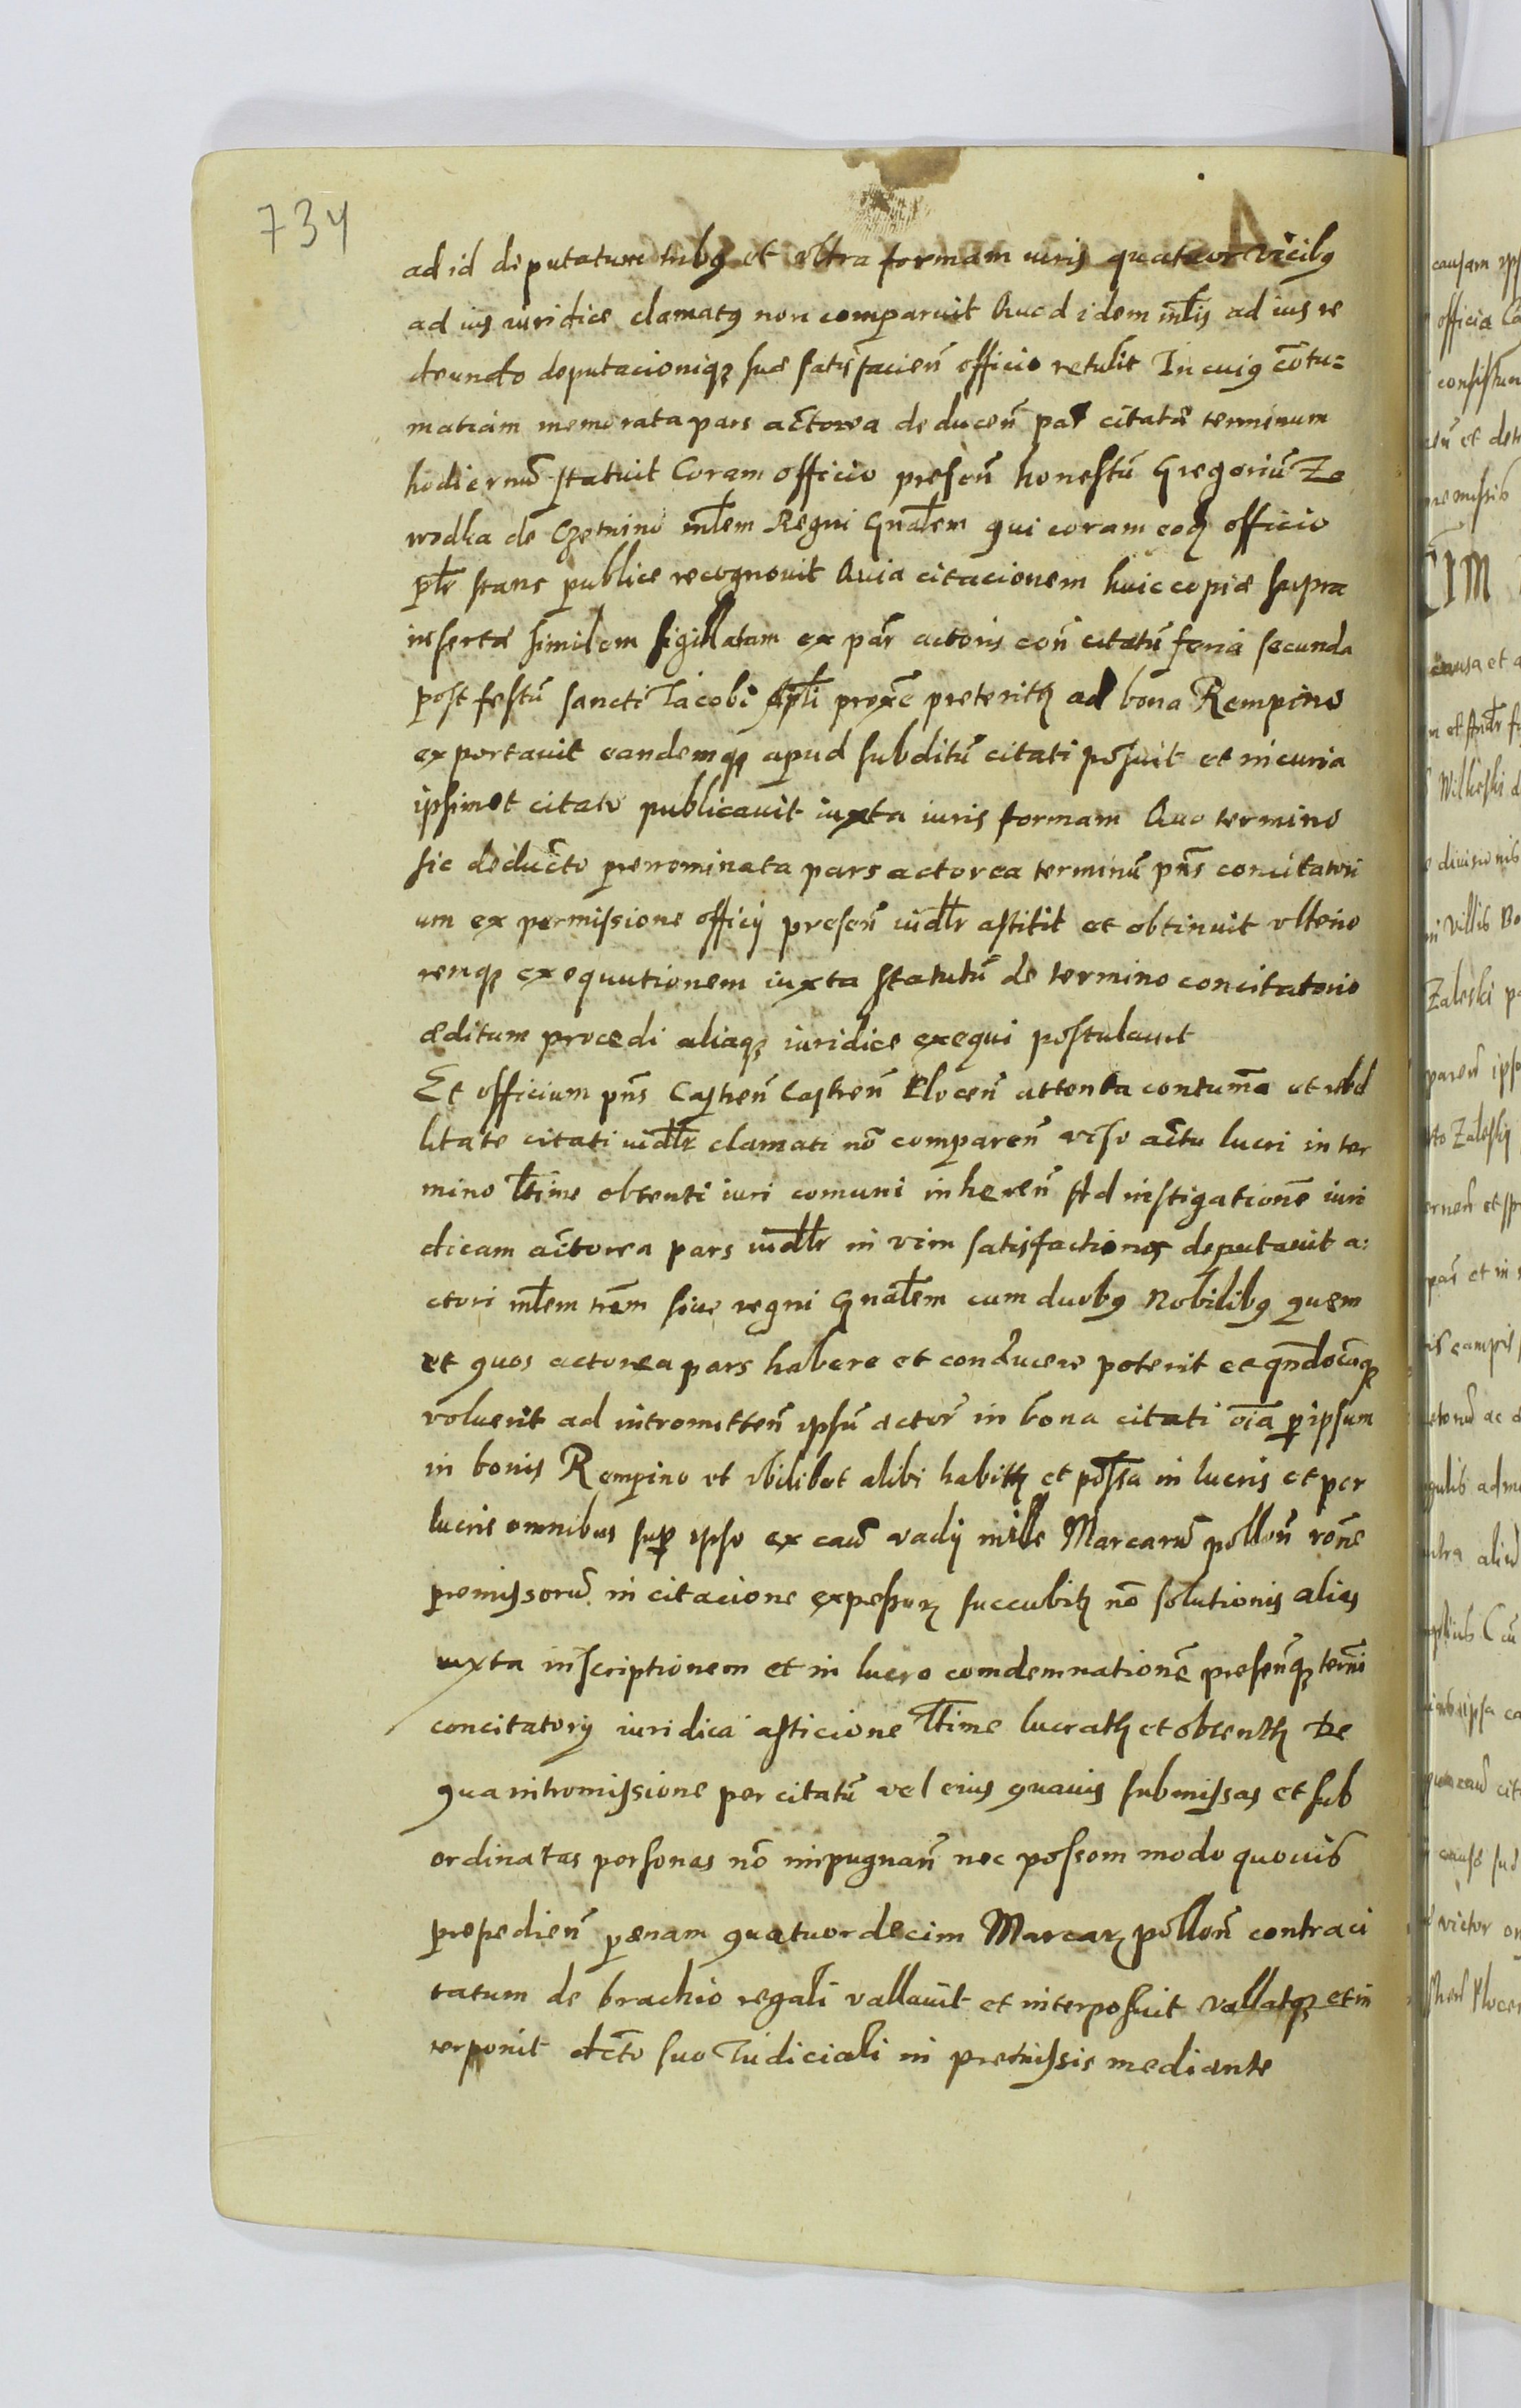 734
ad id deputatum tribq et vltra formam iuris quatuor vicibq
ad ius iuridice clamatq non comparuit Quod idem mlis ad ius re
deundo deputacioniqz suæ satisfacien officio retulit In cuiq cotu=
matiam memorata pars actorea deducen par citatæ terminum
hodiernu statuit Coram officio presen honestu Gregoriu Za
wodka de Czernino mlem Regni Gnalem qui coram eodz officio
plr stans publice recognouit Quia citacionem huic copiæ supra
insertæ similem sigillatam ex par actoris con citatu feria secunda
post festu sancti Iacobi Apli proxe preteritz ad bona Rempino
exportauit eandemqz apud subditu citati posuit et in curia
ipsimet citato publicauit iuxta iuris formam Quo termino
sic deducto prenominata pars actorea terminu pns concitatori
um ex permissione officij presen iudlr astitit et obtinuit vlterio
remqz exequutionem iuxta statutu de termino concitatorio
æditum procedi aliaqz iuridice exequi postulauit
Et officium pns Castren Castren Plocen attenta contuma et rebel
litate citati iudlr clamati no comparen viso actu lucri in ter
mino ltime obtenti iuri comuni inheren Ad instigatione iuri
dicam actorea pars iudlr in vim satisfactionis deputauit a:
ctori mlem trem siue regni Gnalem cum duobq Nobilibq quem
et quos actorea pars habere et conducere poterit et qndocuqz
voluerit ad intromitten ipsu actor in bona citati oia p ipsum
in bonis Rempino et vbilibet alibi habitz et possa in lucris et per
lucris omnibus sup ipso ex cau vadij mille Marcaru pollon rone
premissoru in citacione expressorz succubitz no solutionis alias
iuxta inscriptionem et in lucro comdemnatione presenqz termi
concitatorij iuridica asticione ltime lucratz et obtentz De
qua intromissione per citatu vel eius quauis submissas et sub
ordinatas personas no impugnan nec possem modo quouis
prepedien pænam quatuordecim Marcarz pollon contra ci
tatum de brachio regali vallauit et interposuit vallatqz et in
terponit dcto suo Iudiciali in premissis mediante